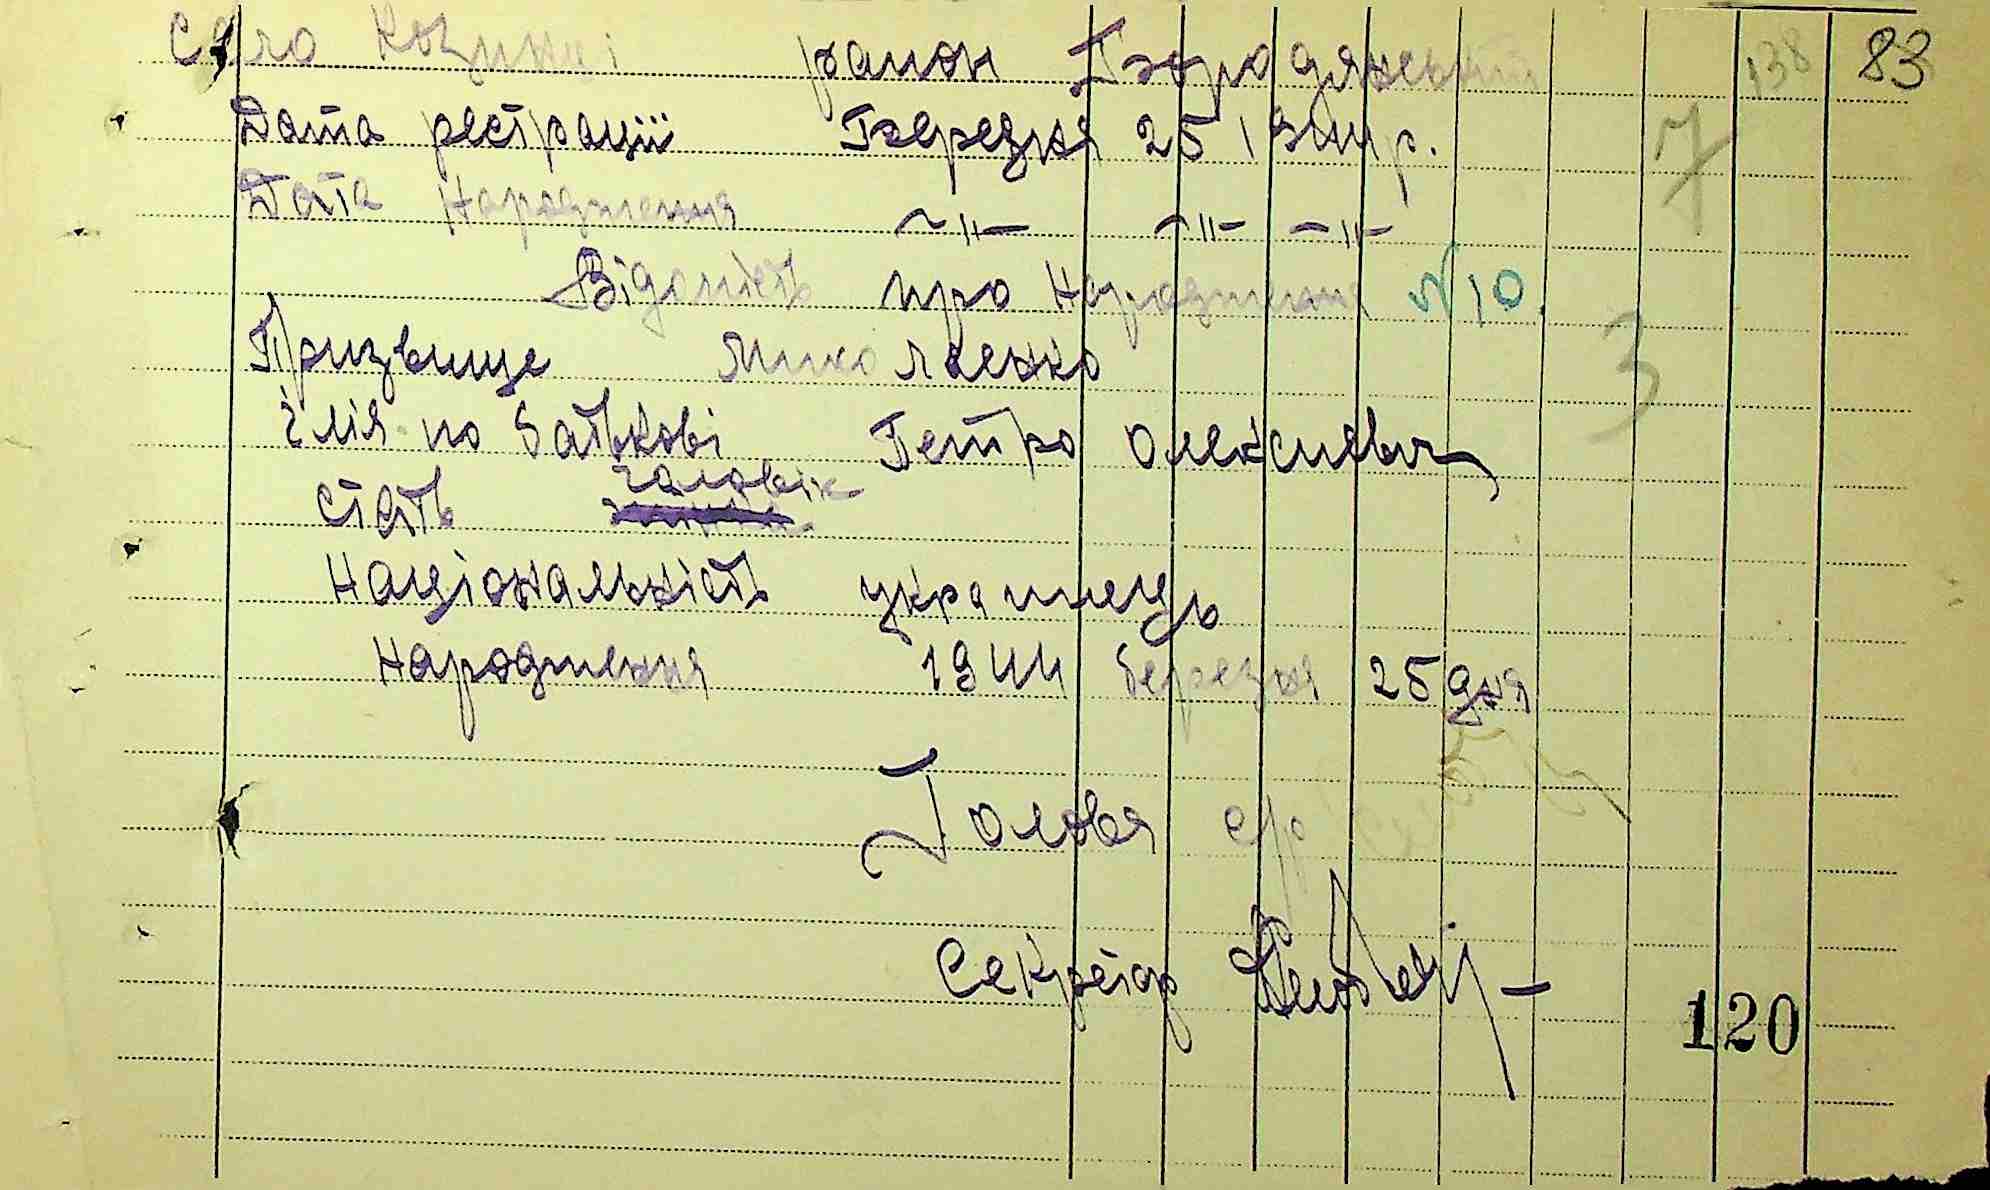 село Козинці район Бородянський 138 83
Дата рєстрації Березня 25 1944 р. 7
Дата народження ~ıı— ~ıı— —ıı—
Відомість про народження N 10.
Призвище Миколаенко 3
імія по батькові Петро Олексиевич
чоловік
стать
Національність украинець
народження 1944 березня 25 дня
Голова с/р
Секретар
120